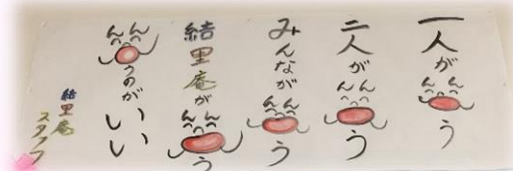 一人がう
二人がう
みんながう
結里庵がう
うのがいい
結里庵
スタッフ